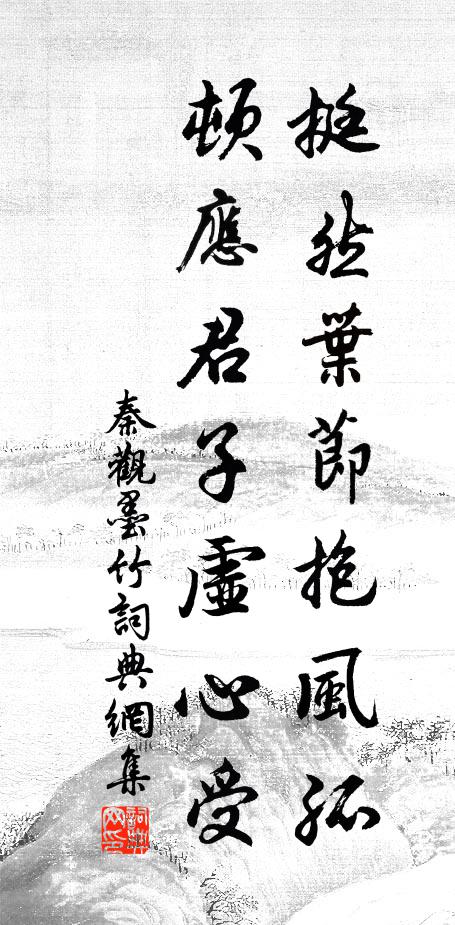 挺然葉節抱風孤
頓應君子虛心受
秦觀墨竹詞典網集